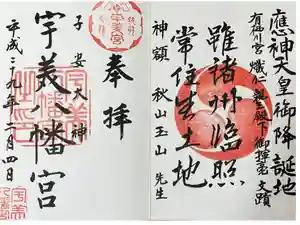 應神天皇御降誕地
有栖川宮 熾仁親王殿下御揮毫文蹟
雖諸州臨照
常住生土地
神額 秋山玉山 先生
筑前
宇美宮
奉拝
子安大神
宇美八幡宮
平成二十九年二月四日